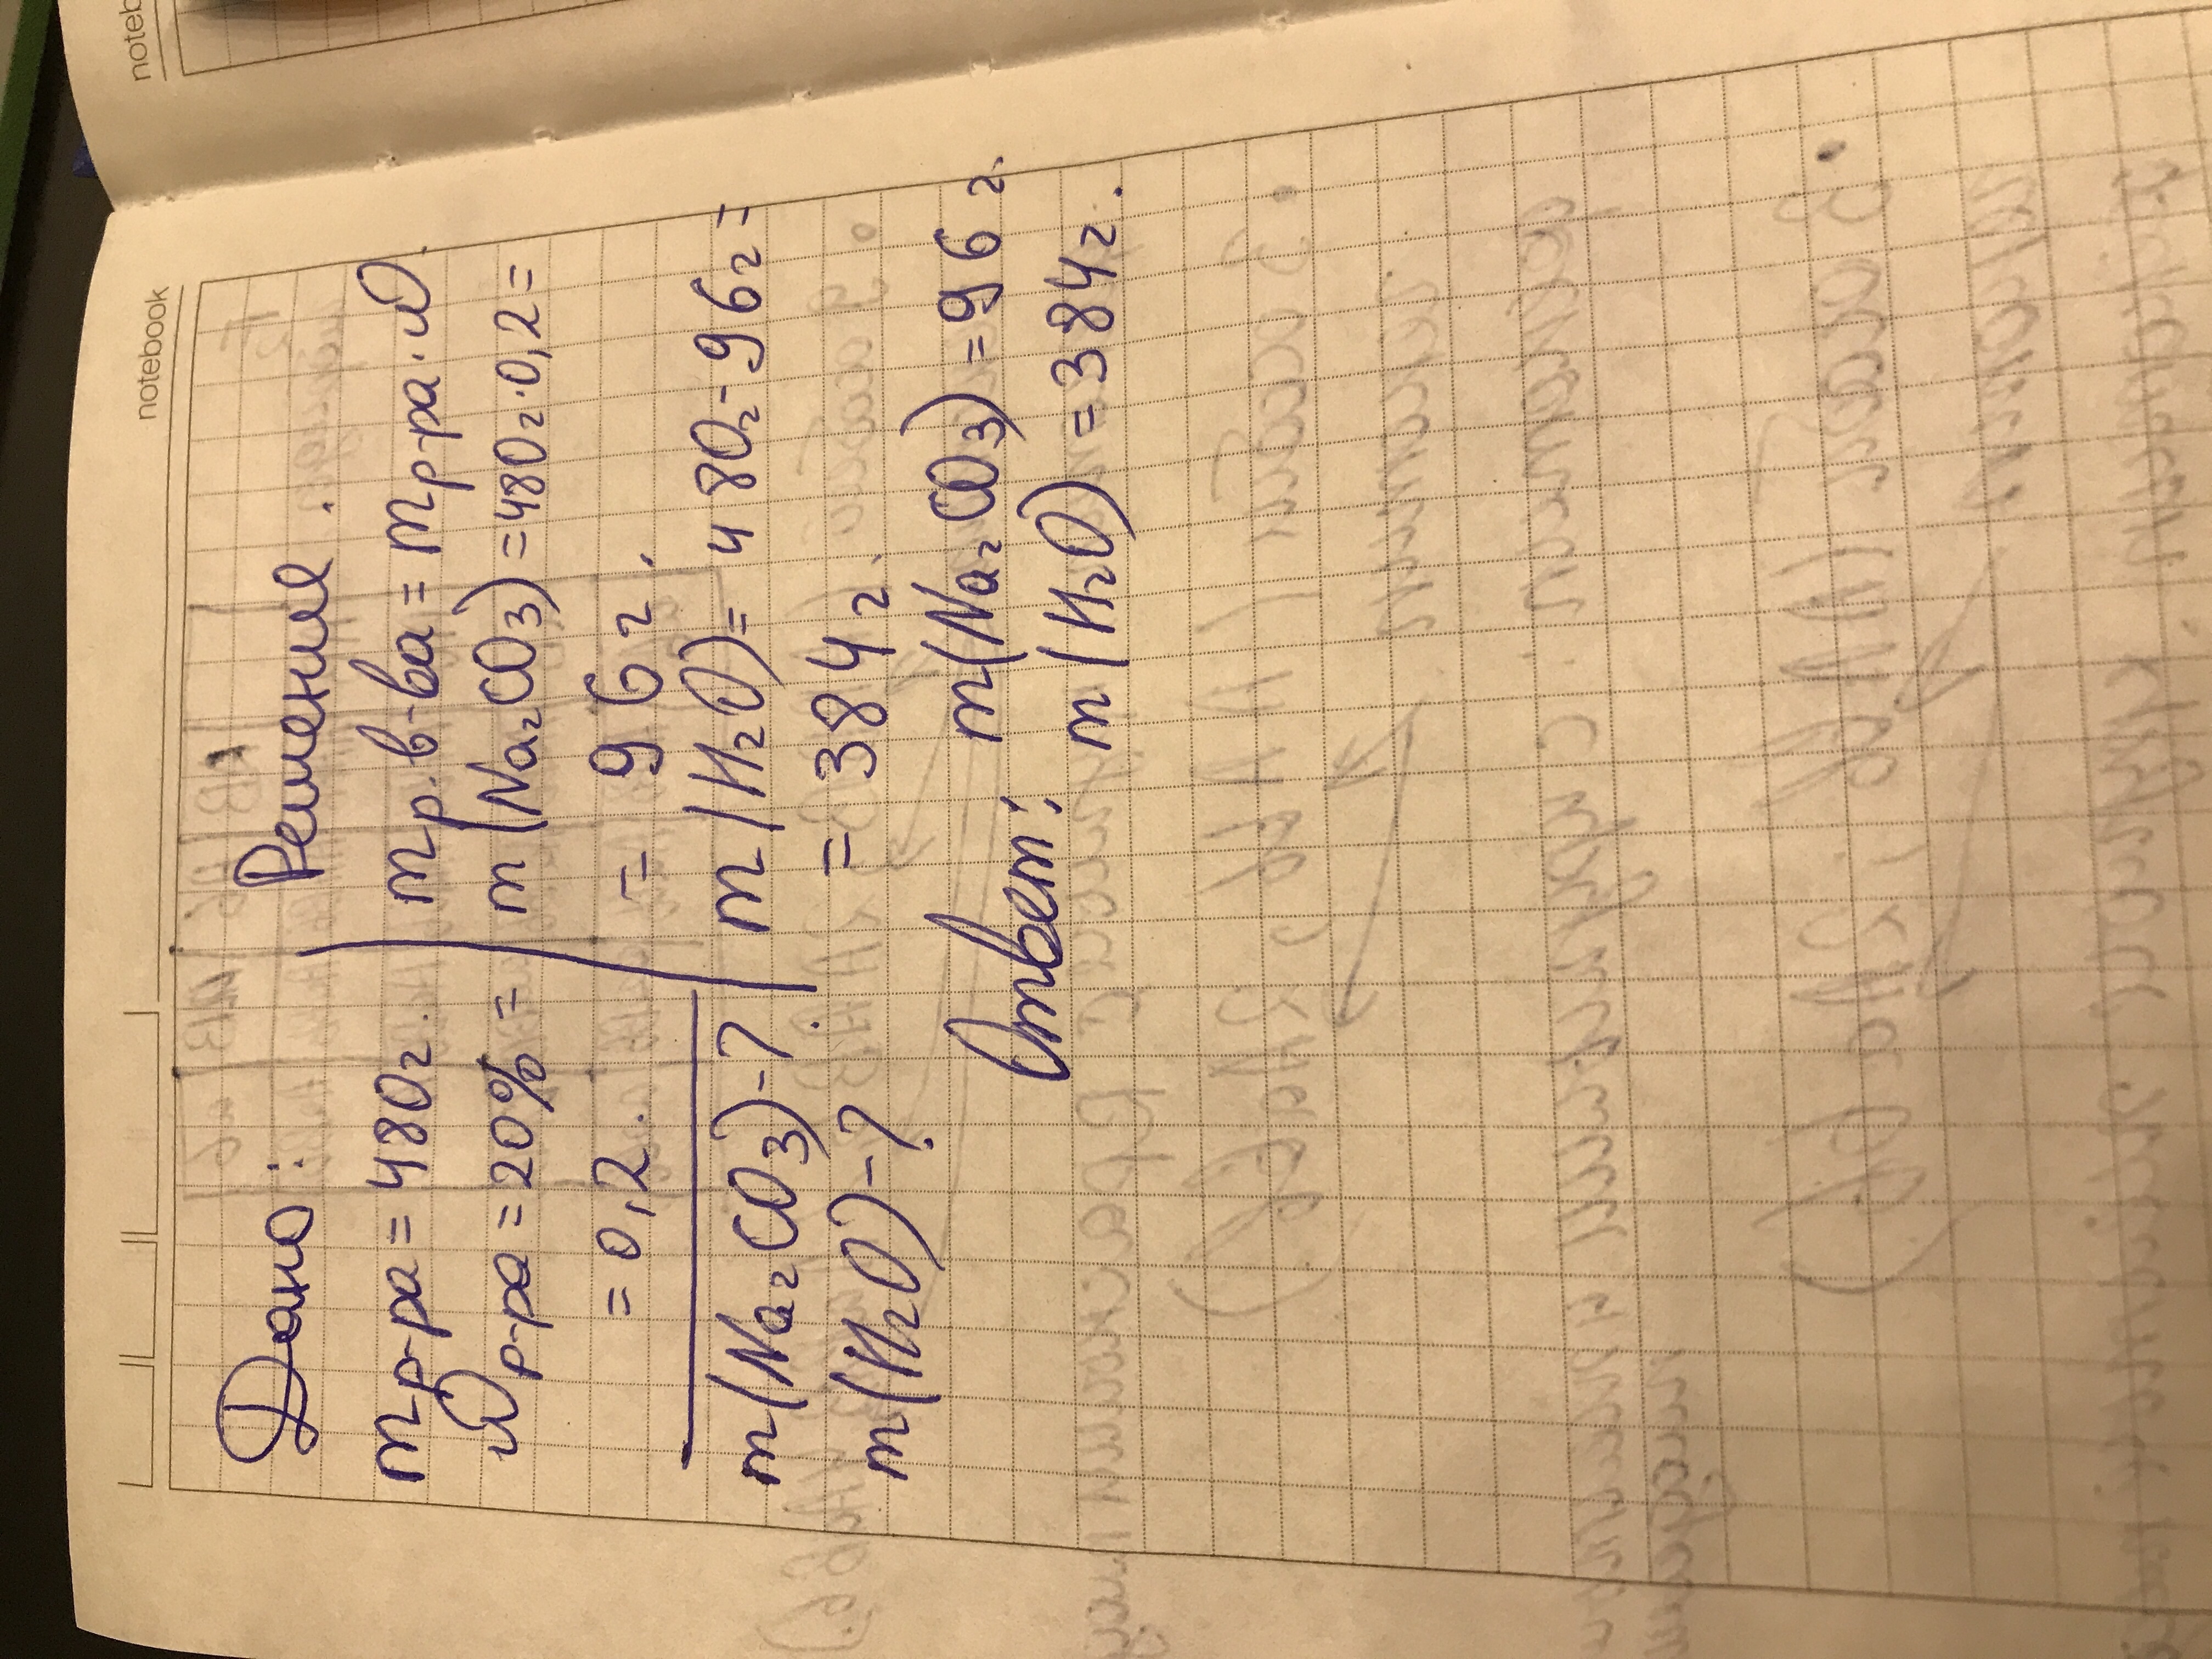 notebook
Дано:
mр-ра = 480г.
ωр-ра = 20% =
= 0,2.
m(Na₂CO₃)-?
m(H₂O)-?
Решение:
mр.в-ва = mр-ра·ω.
m(Na₂CO₃) = 480г·0,2 =
= 96г.
m(H₂O) = 480г - 96г =
= 384г.
Ответ: m(Na₂CO₃) = 96г.
m(H₂O) = 384г.